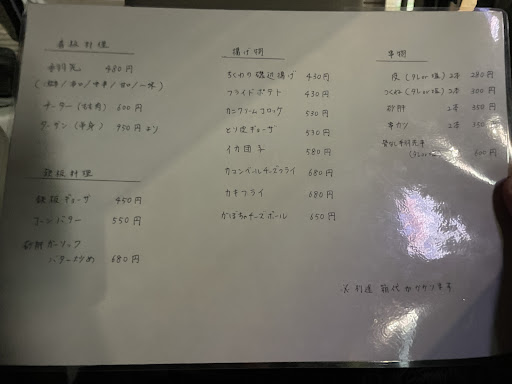 看板料理
手羽先 480円
ターザン (半身) 950円より
鉄板料理
鉄板ギョーザ 450円
コーンバター 550円
砂肝ガーリック
バター炒め 680円
揚げ物
ちくわの磯辺揚げ 430円
フライドポテト 430円
カニクリームコロッケ 530円
とり皮ギョーザ 530円
イカ団子 580円
カマンベールチーズフライ 680円
カキフライ 680円
かぼちゃチーズボール 650円
串物
皮 (タレor塩) 2本 280円
つくね (タレor塩) 2本 300円
砂肝 2本 350円
串カツ 2本 350円
骨なし手羽先串
600円
※別途 箱代かかります